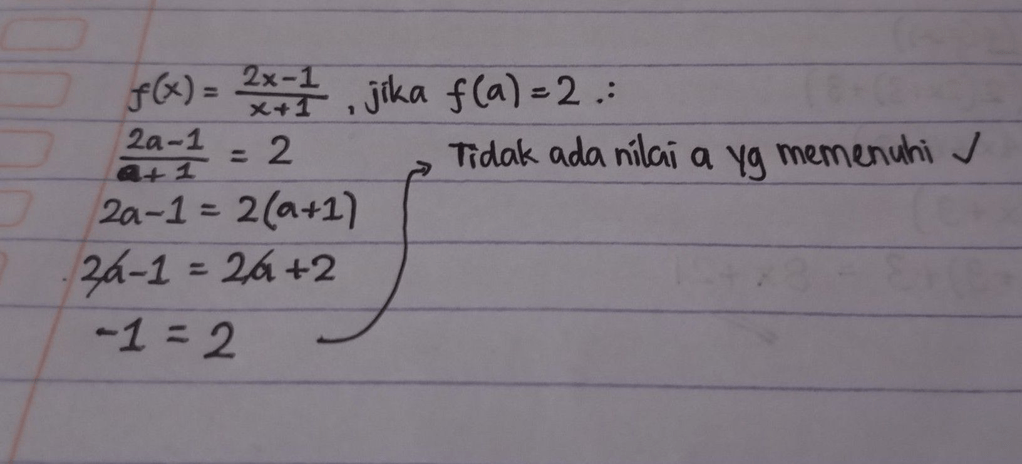 f(x) = \frac{2x-1}{x+1}, jika f(a) = 2 .:
\frac{2a-1}{a+1} = 2
Tidak ada nilai a yg memenuhi ✓
2a-1 = 2(a+1)
2a-1 = 2a+2
-1 = 2